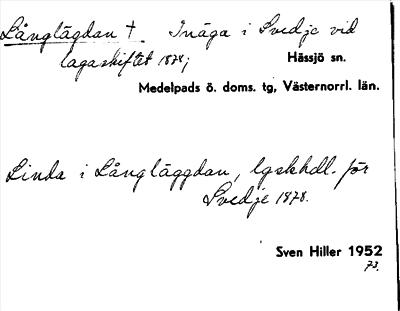 Långlägdan † Inäga i Svedje vid
lagaskiftet 1878; Hässjö sn.
Medelpads ö. doms. tg, Västernorrl. län.
Linda i Långläggdan, lgskhdl. för
Svedje 1878.
Sven Hiller 1952
73.